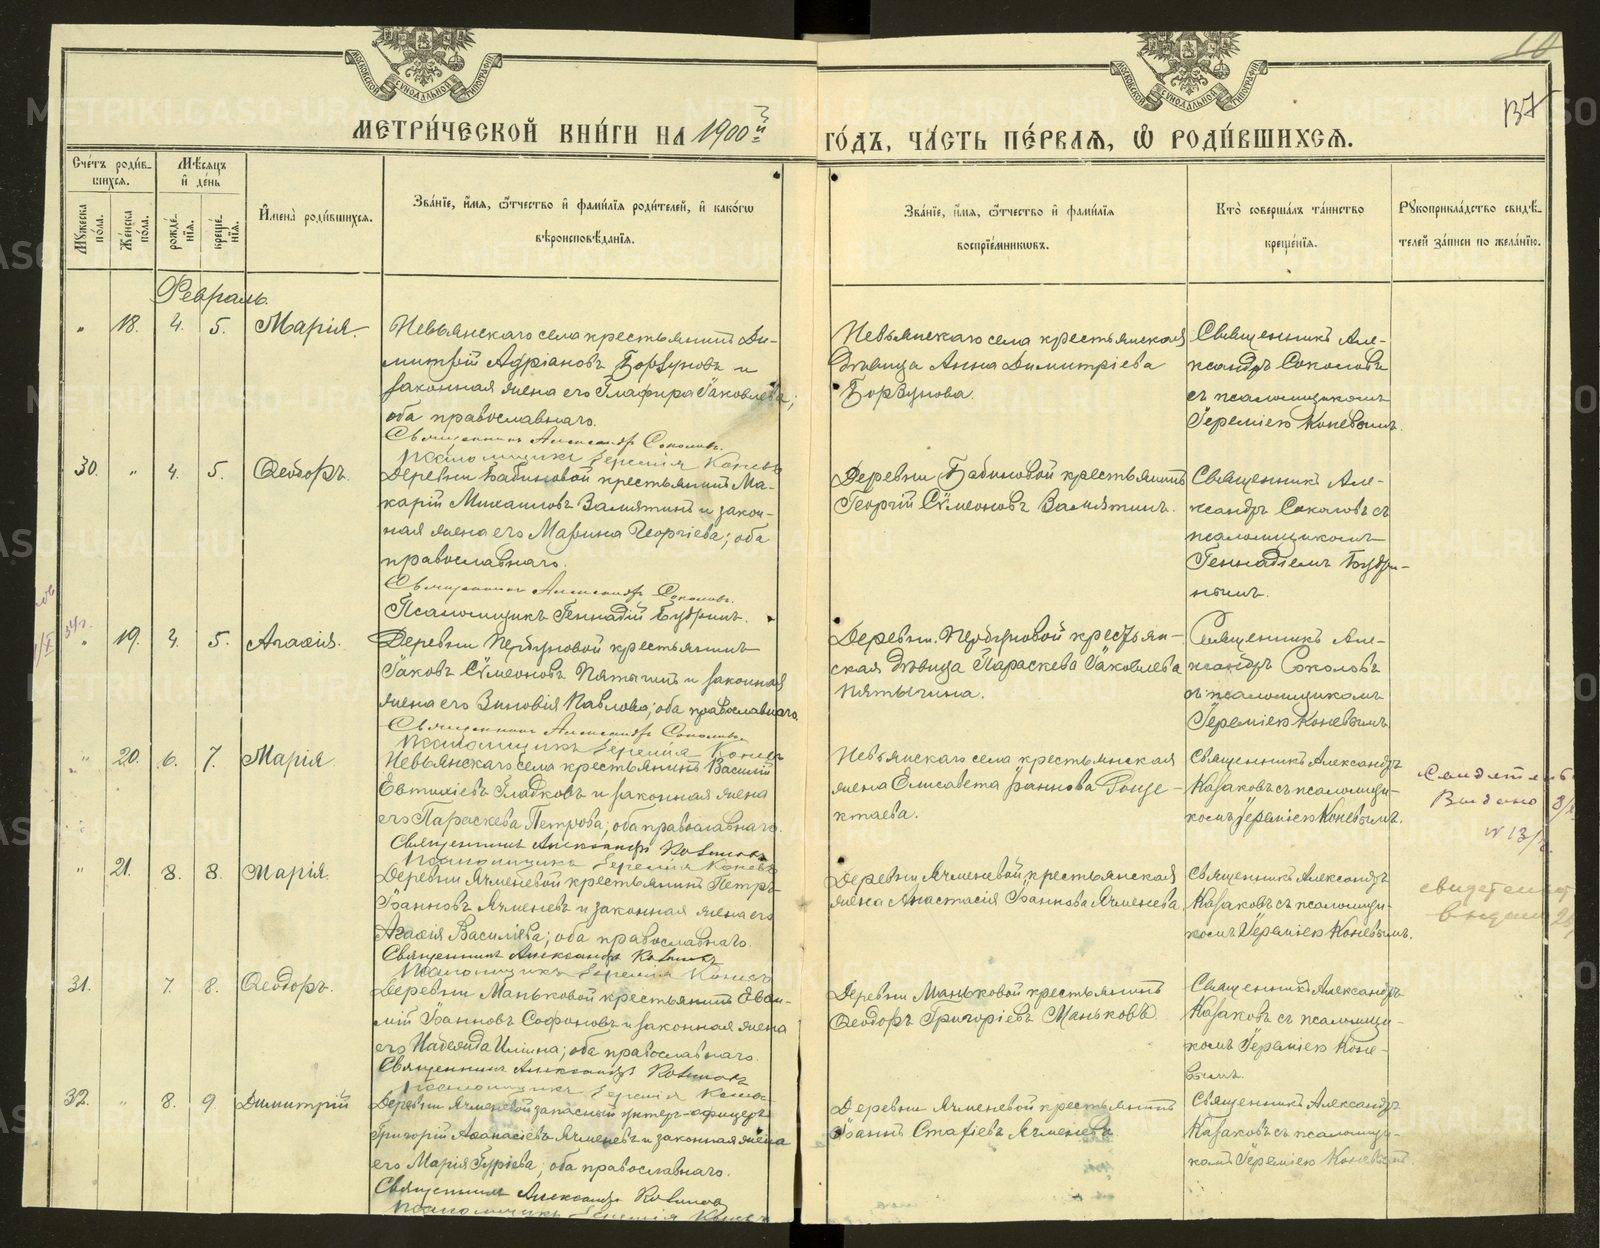 МОСКОВСКОЙ СѴНОДАЛЬНОЙ ТИПОГРАФІИ
МОСКОВСКОЙ СѴНОДАЛЬНОЙ ТИПОГРАФІИ
МЕТРИ́ЧЕСКОЙ КНИ́ГИ НА 1900й ГО́ДЪ, ЧА́СТЬ ПЕ́РВАѦ, Ѡ РОДИ́ВШИХСѦ.
Сче́тъ роди́в-
шихсѧ.
Мꙋ́жеска по́ла.
Же́нска по́ла.
Мѣ́сѧцъ
и҆ де́нь
рожде́-
нїѧ.
креще́-
нїѧ.
И҆мена̀ роди́вшихсѧ.
Зва́нїе, и҆́мѧ, ѻ҆́тчество и҆ фами́лїѧ роди́телей, и҆ како́гѡ
вѣроисповѣ́данїѧ.
Зва́нїе, и҆́мѧ, ѻ҆́тчество и҆ фами́лїѧ
воспрїе́мникѡвъ.
Кто̀ соверша́лъ та́инство
креще́нїѧ.
Рꙋкоприкла́дство свидѣ́-
телей за́писи по жела́нїю.
Февраль.
" 18. 4. 5. Марія.
Невьянскаго села крестьянинъ Ди-
митрій Адріановъ Борзуновъ и
законная жена его Глафира Іаковлева;
оба православнаго.
Священникъ Александръ Соколовъ.
Псаломщикъ Іеремія Коневъ
Невьянскаго села крестьянская
дѣвица Анна Димитріева
Борзунова.
Священникъ Але-
ксандръ Соколовъ
съ псаломщикомъ
Іереміею Коневымъ.
30. " 4. 5. Ѳеодоръ.
Деревни Бабиновой крестьянинъ Ма-
карій Михаиловъ Замятинъ и закон-
ная жена его Марина Георгіева; оба
православнаго.
Священникъ Александръ Соколовъ.
Псаломщикъ Геннадій Будринъ.
Деревни Бабиновой крестьянинъ
Георгій Сѵмеоновъ Замятинъ.
Священникъ Але-
ксандръ Соколовъ съ
псаломщикомъ
Геннадіемъ Будри-
нымъ.
" 19. 4. 5. Агаѳія.
Деревни крестьянинъ
Іаковъ Сѵмеоновъ Пятыгинъ и законная
жена его Зиновія Павлова; оба православнаго.
Священникъ Александръ Соколовъ
Псаломщикъ Іеремія Коневъ
Деревни крестьян-
ская дѣвица Параскева Іаковлева
Пятыгина.
Священникъ Але-
ксандръ Соколовъ
съ псаломщикомъ
Іереміею Коневымъ
" 20. 6. 7. Марія
Невьянскаго села крестьянинъ Василій
Евтихіевъ Гладковъ и законная жена
его Параскева Петрова; оба православнаго.
Священникъ Александръ Казаковъ
Псаломщикъ Іеремія Коневъ
Невьянскаго села крестьянская
жена Елисавета Іоаннова
Священникъ Александръ
Казаковъ съ псаломщи-
комъ Іереміею Коневымъ.
" 21. 8. 8. Марія.
Деревни Ячменевой крестьянинъ Петръ
Іоанновъ Ячменевъ и законная жена его
Агаѳія Василіева; оба православнаго.
Священникъ Александръ Казаковъ
Псаломщикъ Іеремія Коневъ
Деревни Ячменевой крестьянская
жена Анастасія Іоаннова Ячменева
Священникъ Александръ
Казаковъ съ псаломщи-
комъ Іереміею Коневымъ.
31. 7. 8. Ѳеодоръ.
Деревни Маньковой крестьянинъ
Іоанновъ Софоновъ и законная жена
его Надежда Иліина; оба православнаго.
Священникъ Александръ Казаковъ
Псаломщикъ Іеремія Коневъ
Деревни Маньковой крестьянинъ
Ѳеодоръ Григоріевъ Маньковъ
Священникъ Александръ
Казаковъ съ псаломщи-
комъ Іереміею Коне-
вымъ.
32. " 8. 9 Димитрій
Деревни Ячменевой запасный унтеръ-офицеръ
Григорій Аѳанасіевъ Ячменевъ и законная жена
его Марія Гуріева; оба православнаго.
Священникъ Александръ Казаковъ
Псаломщикъ Іеремія Коневъ
Деревни Ячменевой крестьянинъ
Іоаннъ Ячменевъ
Священникъ Александръ
Казаковъ съ псаломщи-
комъ Іереміею Коневымъ